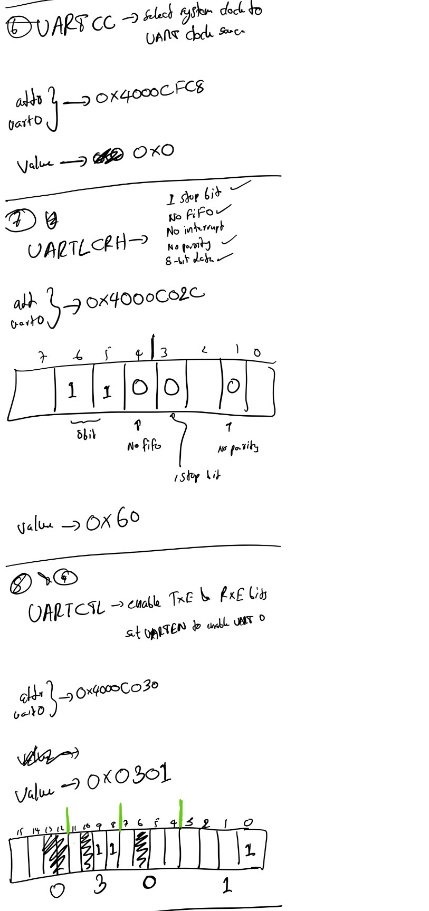 ⑥ UARTCC → select system clock to
UART clock source
addr
uart0 } → 0x4000CFC8
Value → 0x0
⑦
UARTLCRH →
1 stop bit ✓
No FiFo ✓
No interrupt
No parity ✓
8-bit data ✓
add
uart0 } → 0x4000C02C
7 6 5 4 3 2 1 0
1 1 0 0 0
8bit
No fifo
1 stop bit
No parity
value → 0x60
⑧ ⑨
UARTCTL → enable TxE & RXE bits
set UARTEN to enable UART 0
addr
uart0 } → 0x4000C030
Value → 0x0301
15 14 13 12 11 10 9 8 7 6 5 4 3 2 1 0
1 1 1
0 3 0 1